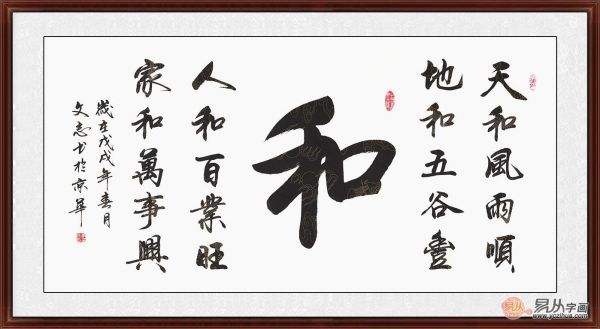 天和風雨順
地和五谷豐
和
人和百業旺
家和萬事興
歲在戊戌年春月
文志书於京華
易从字画
www.yozihua.com